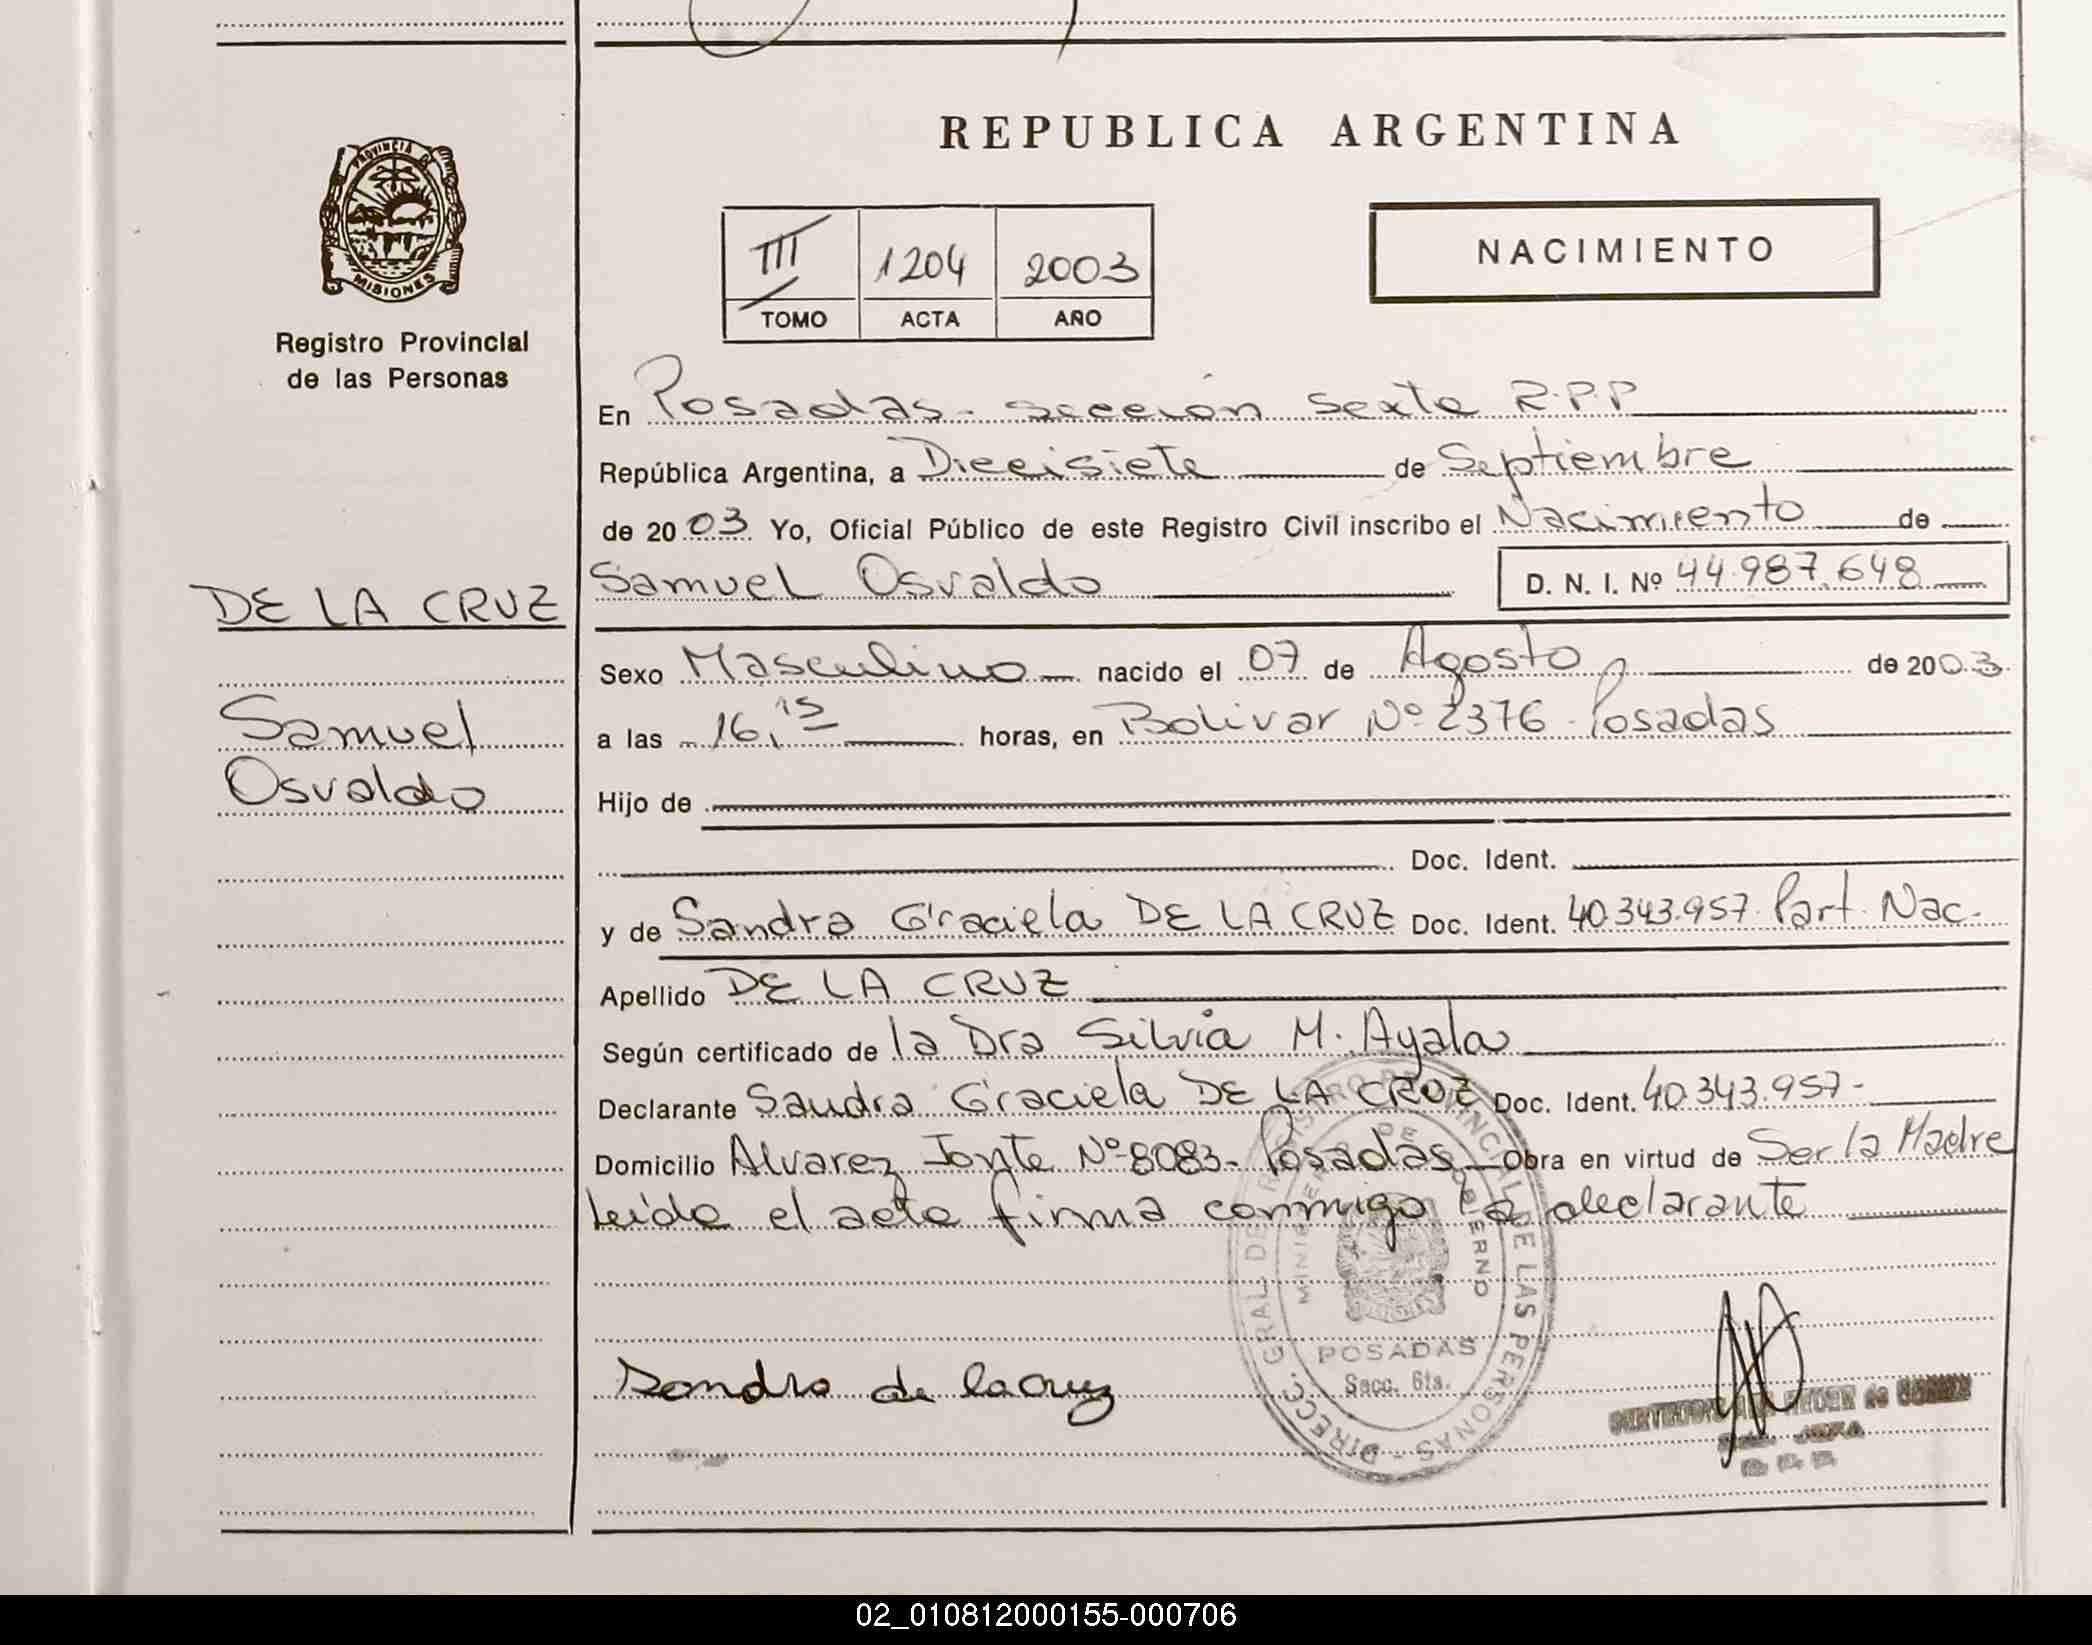 REPUBLICA ARGENTINA
PROVINCIA DE
MISIONES
Registro Provincial
de las Personas
III 1204 2003
TOMO ACTA AÑO
NACIMIENTO
En Posadas - sección sexta R.P.P
República Argentina, a Diecisiete de Septiembre
de 2003 Yo, Oficial Público de este Registro Civil inscribo el Nacimiento de
DE LA CRUZ
Samuel Osvaldo D. N. I. Nº 44.987.648
Sexo Masculino nacido el 07 de Agosto de 2003
Samuel
a las 16,15 horas, en Bolivar Nº 2376 - Posadas
Osvaldo
Hijo de
Doc. Ident.
y de Sandra Graciela DE LA CRUZ Doc. Ident. 40.343.957. Part. Nac.
Apellido DE LA CRUZ
Según certificado de la Dra Silvia M. Ayala
Declarante Sandra Graciela DE LA CRUZ Doc. Ident. 40.343.957-
Domicilio Alvarez Jonte Nº 8083- Posadas Obra en virtud de Ser la Madre
leída el acta firma conmigo la declarante
DIRECC. GRAL. DEL REGISTRO PROVINCIAL DE LAS PERSONAS
MINISTERIO DE GOBIERNO
POSADAS
Secc. 6ta.
Sandra de lacruz
02_010812000155-000706